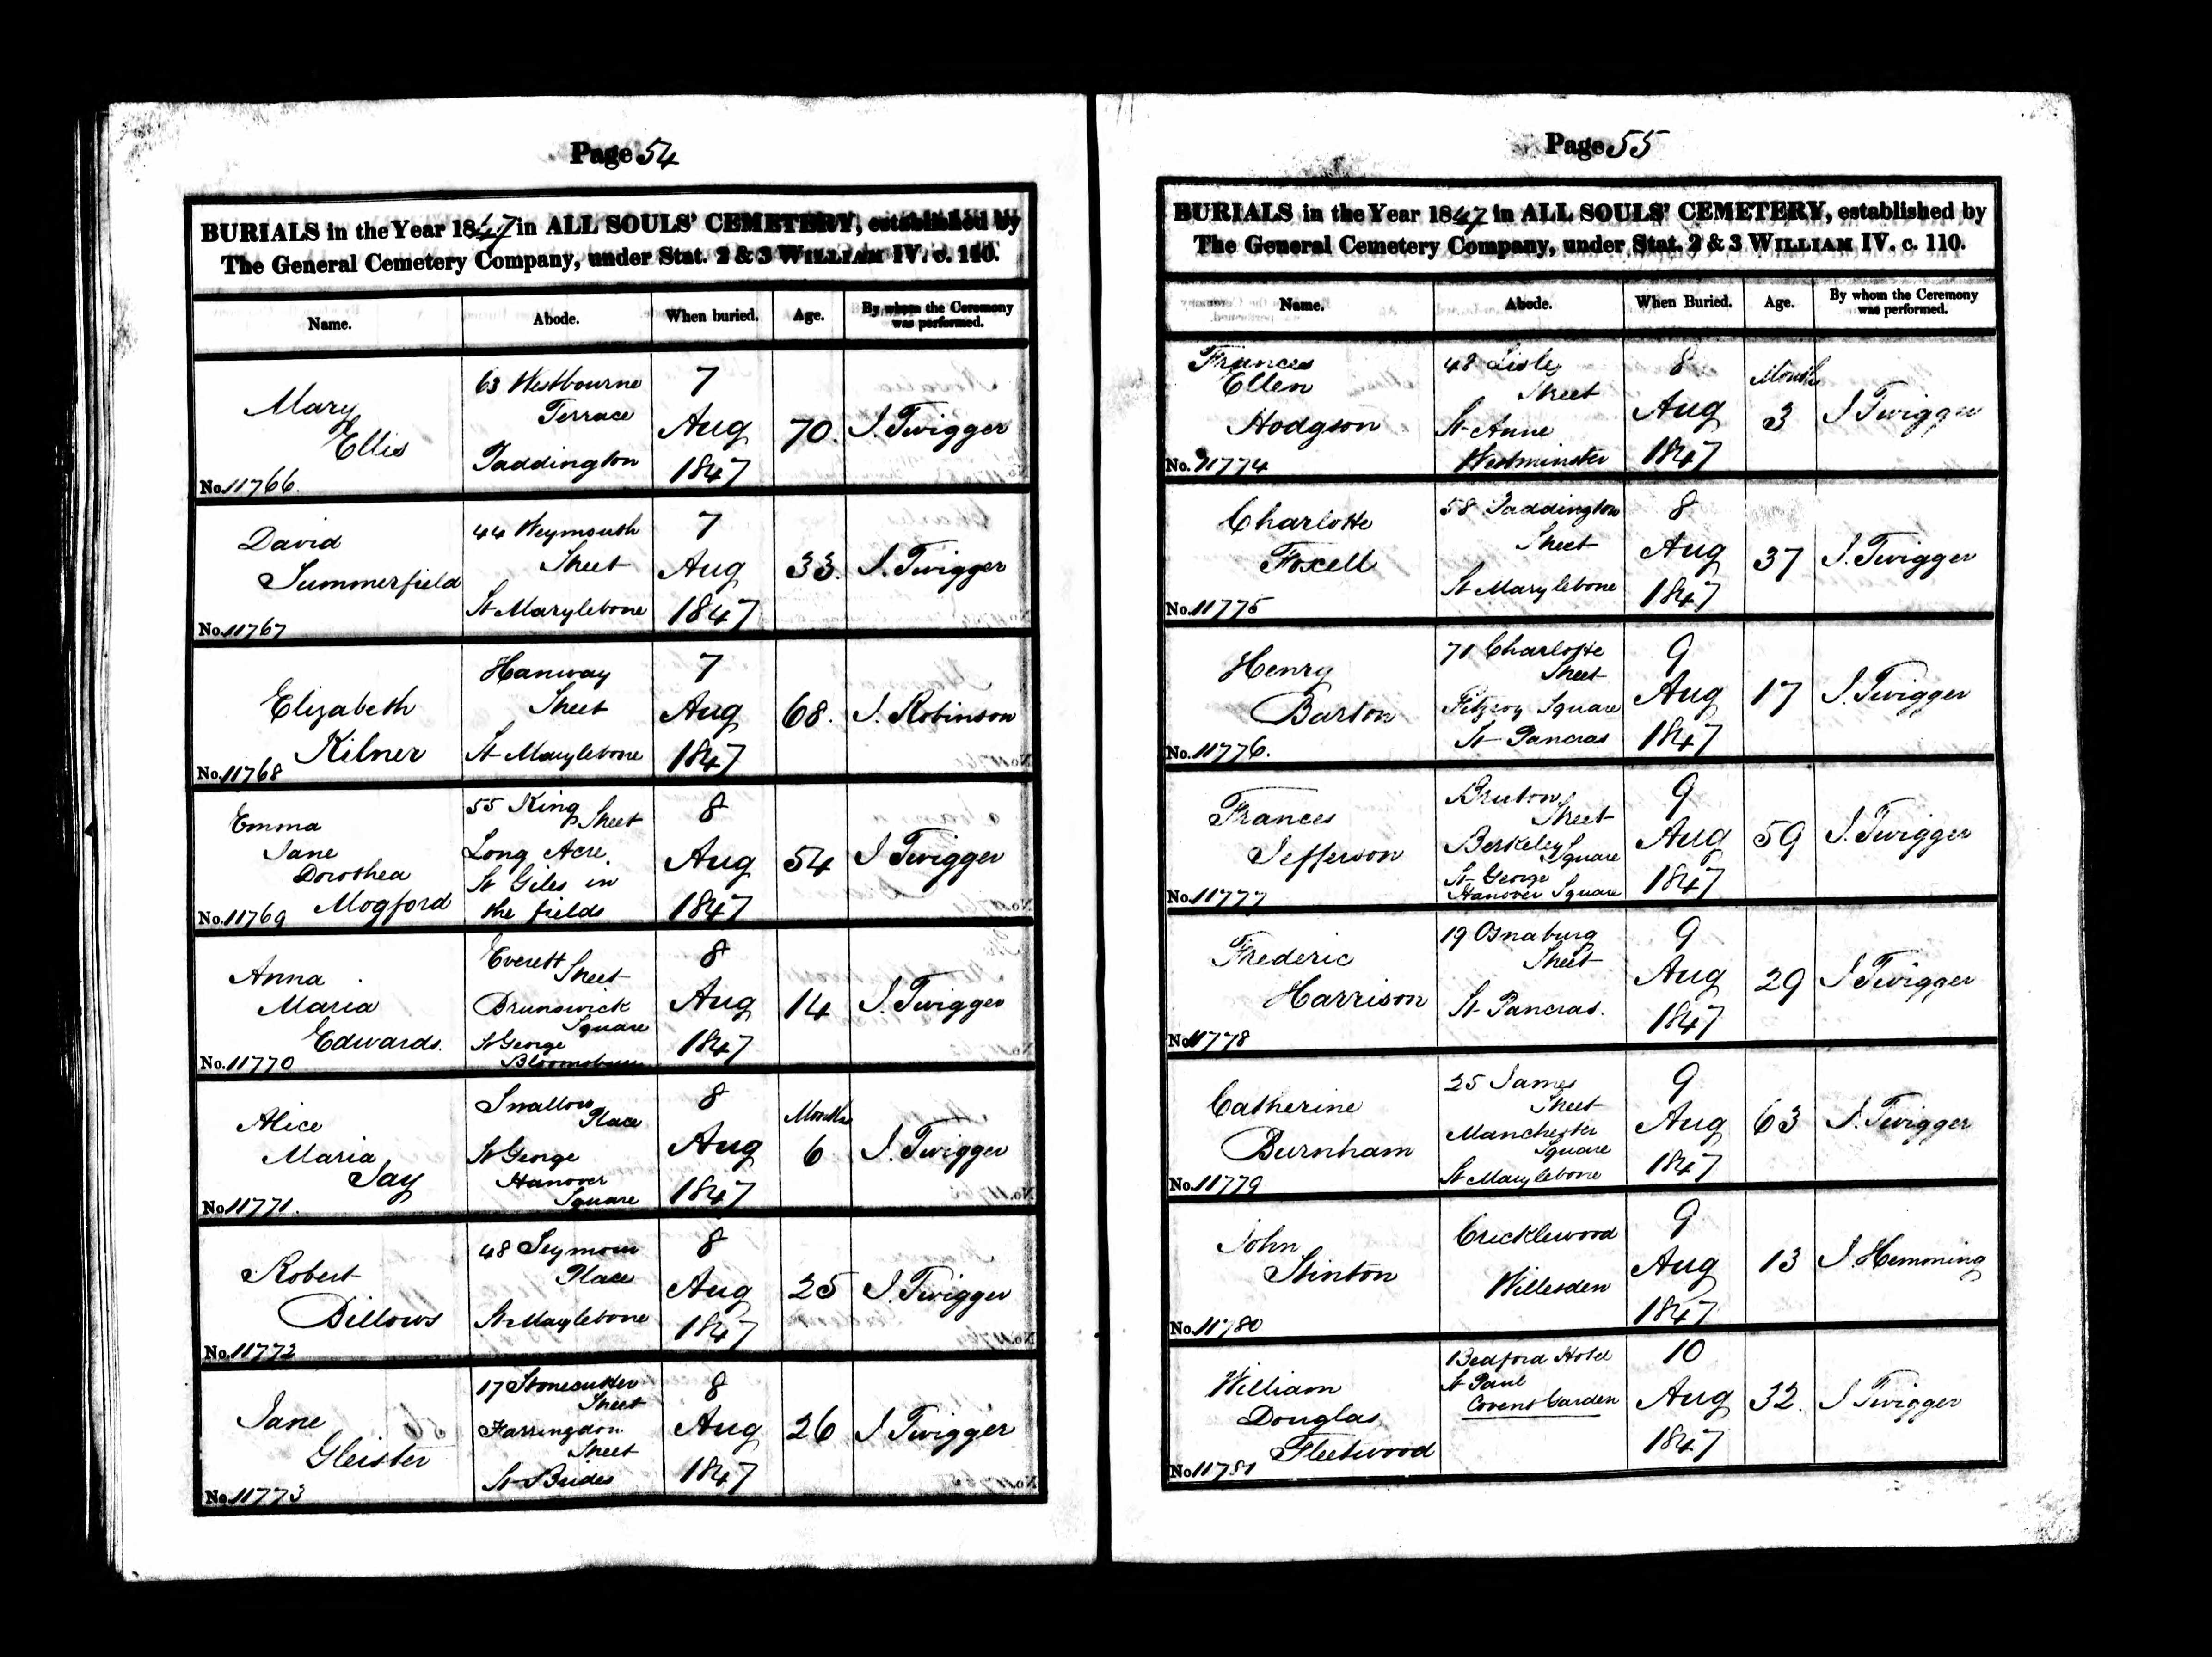 Page 54
BURIALS in the Year 1847 in ALL SOULS' CEMETERY, established by
The General Cemetery Company, under Stat. 2 & 3 WILLIAM IV. c. 110.
Name. Abode. When buried. Age. By whom the Ceremony
was performed.
Mary
Ellis
No. 11766.
63 Westbourne
Terrace
Paddington
7
Aug
1847
70.
J. Twigger
David
Summerfield
No. 11767
44 Weymouth
Street
St Marylebone
7
Aug
1847
33.
J. Twigger
Elizabeth
Kilner
No. 11768
Hanway
Street
St Marylebone
7
Aug
1847
68.
J. Robinson
Emma
Jane
Dorothea
Mogford
No. 11769
55 King
Street
Long Acre.
St Giles in
the fields
8
Aug
1847
54
J Twigger
Anna
Maria
Edwards.
No. 11770
Everett
Street
Brunswick
Square
St George
Bloomsbury
8
Aug
1847
14
J. Twigger
Alice
Maria
Jay
No. 11771.
Swallow
Place
St George
Hanover
Square
8
Aug
1847
Months
6
J. Twigger
Robert
Billows
No. 11772
48 Seymour
Place
St Marylebone
8
Aug
1847
25
J. Twigger
Jane
Gleister
No. 11773
17 Stonecutter
Street
Farringdon
Street
St Brides
8
Aug
1847
26
J Twigger
Page 55
BURIALS in the Year 1847 in ALL SOULS' CEMETERY, established by
The General Cemetery Company, under Stat. 2 & 3 WILLIAM IV. c. 110.
Name. Abode. When Buried. Age. By whom the Ceremony
was performed.
Frances
Ellen
Hodgson
No. 11774
48 Lisle
Street
St Anne
Westminster
8
Aug
1847
Months
3
J Twigger
Charlotte
Foxell
No. 11775
58 Paddington
Street
St Marylebone
8
Aug
1847
37
J. Twigger
Henry
Barton
No. 11776.
71 Charlotte
Street
Fitzroy Square
St Pancras
9
Aug
1847
17
J. Twigger
Frances
Jefferson
No. 11777
Bruton
Street
Berkeley
Square
St George
Hanover Square
9
Aug
1847
59
J. Twigger
Frederic
Harrison
No. 11778
19 Osnaburg
Street
St Pancras.
9
Aug
1847
29
J Twigger
Catherine
Burnham
No. 11779
25 James
Street
Manchester
Square
St Marylebone
9
Aug
1847
63
J. Twigger
John
Stinton
No. 11780
Cricklewood
Willesden
9
Aug
1847
13
J. Hemming
William
Douglas
Fleetwood
No. 11781
Bedford Hotel
St Paul
Covent Garden
10
Aug
1847
32.
J Twigger